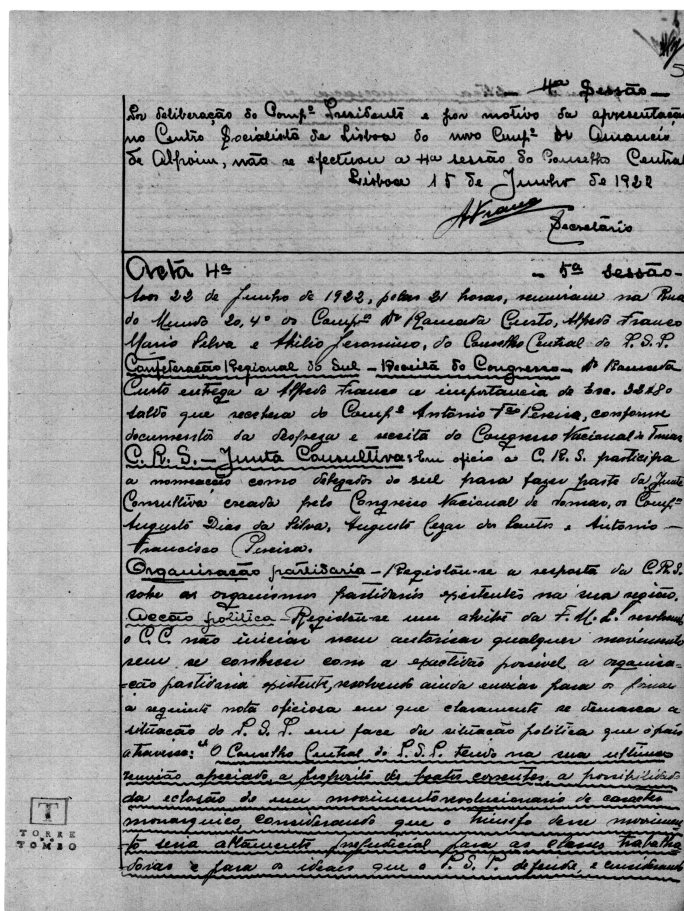 5
— 4ª Sessão —
Por deliberação do Comp.º Presidente e por motivo da apresentação
no Centro Socialista de Lisboa do novo Comp.º Dr Amancio
de Alpoim, não se efectuou a 4ª sessão do Conselho Central
Lisboa 15 de Junho de 1922
AFranco
Secretário
Acta 4ª — 5ª sessão —
Aos 22 de Junho de 1922, pelas 21 horas, reuniram na Rua
do Mundo 20, 4º os Comp.ºs Dr Ramada Curto, Alfredo Franco
Mario Silva e Abilio Jeronimo, do Conselho Central do P.S.P.
Confederação Regional do Sul — Receita do Congresso — Dr Ramada
Curto entrega a Alfredo Franco a importancia de Esc. 32$80
saldo que recebera do Comp.º António Fco Pereira, conforme
documentos da despeza e receita do Congresso Nacional de Tomar
C.R.S. — Junta Consultiva: Em oficio a C.R.S. participa
a nomeação como delegados do sul para fazer parte da Junta
Consultiva creada pelo Congresso Nacional de Tomar, os Comp.ºs
Augusto Dias da Silva, Augusto Cezar dos Santos e Antonio —
Francisco Pereira.
Organisação partidaria — Registou-se a resposta da C.R.S.
sobre os organismos partidarios existentes na sua região.
Acção politica — Registou-se um alvitre da F.M.L. resolvendo
o C.C. não iniciar nem autorisar qualquer movimento
sem se conhecer com a exactidão possivel a organisa-
-ção partidaria existente, resolvendo ainda enviar para os jornaes
a seguinte nota oficiosa em que claramente se demarca a
situação do P.S.P. em face da situação politica que o país
atravessa: "O Conselho Central do P.S.P. tendo na sua ultima
reunião apreciado, a proposito de boatos correntes, a possibilidade
da eclosão de um movimento revolucionario de caracter
monarquico, considerando que o triunfo desse movimen-
to seria altamente prejudicial para as classes trabalha
doras e para os ideais que o P.S.P. defende, e considerando
T
TORRE
DO
TOMBO